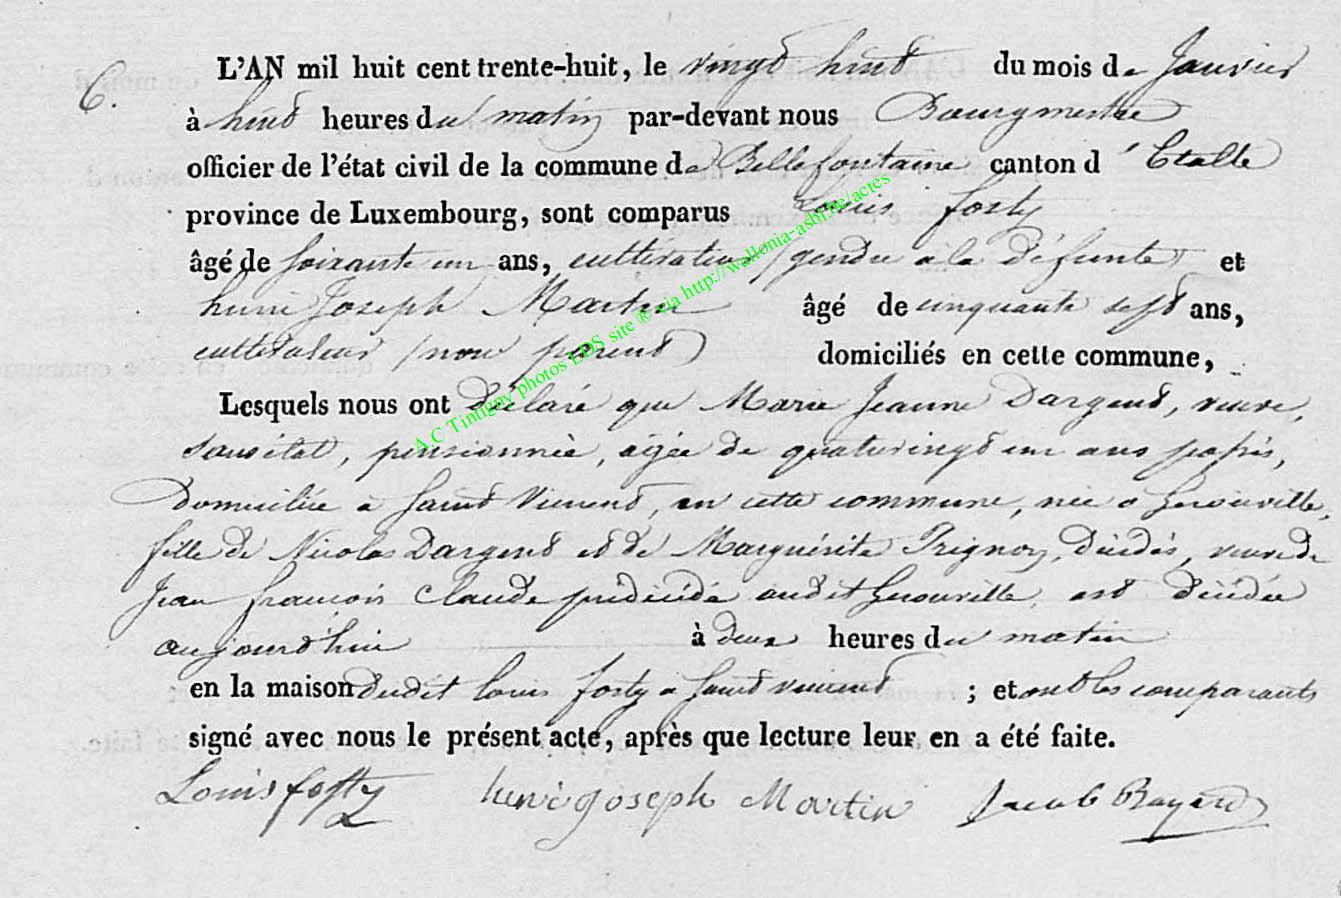 6.
L'AN mil huit cent trente-huit, le vingt huit du mois de Janvier
à huit heures du matin par-devant nous Bourgmestre
officier de l'état civil de la commune de Bellefontaine canton d'Etalle
province de Luxembourg, sont comparus Louis fosty
âgé de soixante un ans, cultivateur (gendre à la défunte) et
henri Joseph Martin âgé de cinquante sept ans,
cultivateur (non parent) domiciliés en cette commune,
Lesquels nous ont déclaré que Marie Jeanne Dargent, veuve,
sans état, pensionnée, agée de quatrevingt un ans passés,
Domiciliée à Saint Vincent, en cette commune, née à Gerouville,
fille de Nicolas Dargent et de Marguérite Trignon, décédés, veuve de
Jean françois Claude prédécédé audit Gerouville, est décédée
aujourd'hui à deux heures du matin
en la maison dudit louis fosty à Saint vincent ; et ont les comparants
signé avec nous le présent acte, après que lecture leur en a été faite.
Louis fosty henri joseph Martin Jacob Bayard
A.C Tintigny photos LDS site ® via http://wallonia-asbl.be/actes